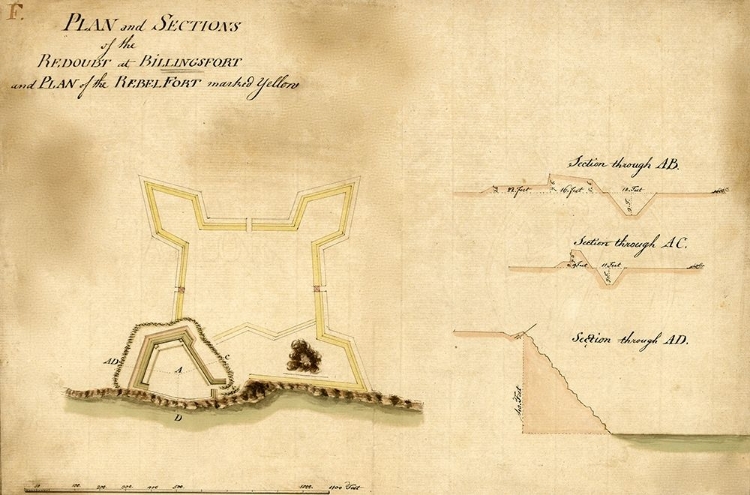 F.
PLAN and SECTIONS
of the
REDOUBT at BILLINGSFORT
and PLAN of the REBEL FORT marked Yellow
Section through AB.
22 feet
16 feet
12 Feet
Section through AC.
11 Feet
Section through AD.
40 Feet
A
C
D
100
200
300
400
500
1000
Feet